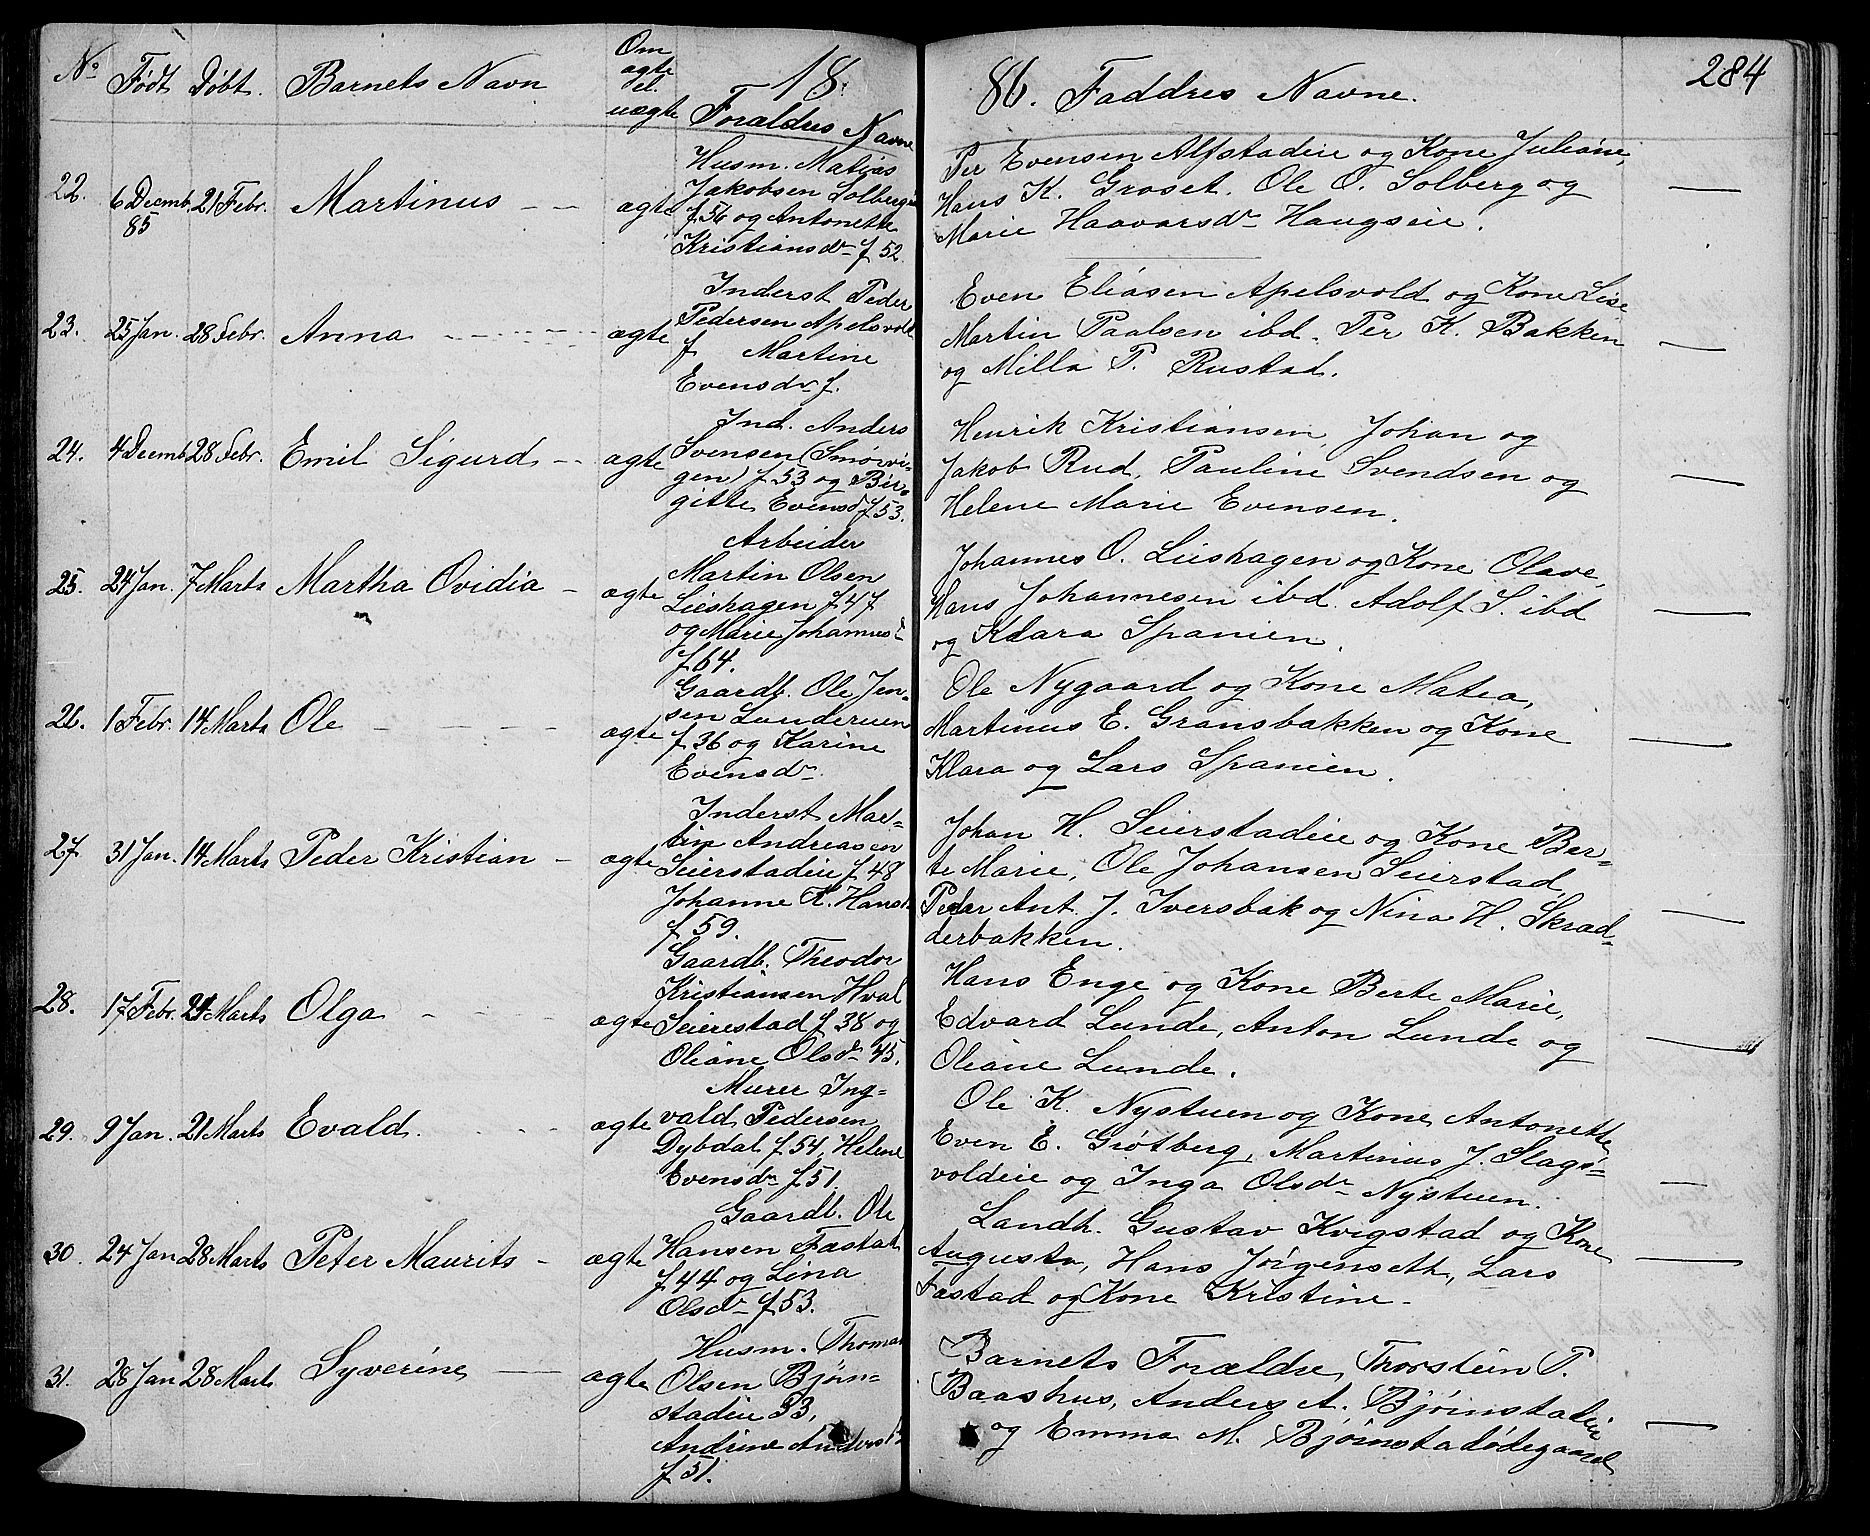 No Født Døbt. Barnets Navn Om ægte el. uægte 18 Foraldres Navne
86. Faddres Navne. 284
22. 6 Decemb. 85 21 Febr. Martinus - - ægte
Husm. Matias
Jakobsen Solbergeie
f. 56 og Antonette
Kristiansdr f 52.
Per Evensen Alfstadeie og Kone Juliane,
Hans K. Groset. Ole O. Solberg og
Marie Haavarsdr Haugseie.
23. 25 Jan. 28 Febr. Anna - - - - ægte
Inderst Peder
Pedersen Apelsvold
f Martine
Evensdr f.
Even Eliasen Apelsvold og Kone Lise
Martin Paalsen ibd. Per K. Bakken
og Milla P. Rustad.
24. 4 Decemb 28 Febr. Emil Sigurd - - ægte
Ind. Anders
Svensen (Smørvi-
gen) f 53 og Bir-
gitte Evensd f 53.
Henrik Kristiansen, Johan og
Jakob Rud, Pauline Svendsen og
Helene Marie Evensen.
25. 24 Jan. 7 Marts Martha Ovidia - ægte
Arbeider
Martin Olsen
Lieshagen f 47
og Marie Johannesd
f 64.
Johannes O. Lieshagen og Kone Olave,
Hans Johannesen ibd. Adolf S. ibd
og Klara Spanien.
26. 1 Febr. 14 Marts Ole - - - - ægte
Gaardb. Ole Jen-
sen Landeruen
f 36 og Karine
Evensdr.
Ole Nygaard og Kone Matea,
Martinus E. Gransbakken og Kone
Klara og Lars Spanien.
27. 31 Jan. 14 Marts Peder Kristian - ægte
Inderst Mar-
tin Andreasen
Seierstadeie f 48
Johanne K. Hansd.
f 59.
Johan H. Seierstadeie og Kone Ber-
te Marie, Ole Johansen Seierstad,
Peder Ant. J. Iversbak og Nina H. Skræd-
derbakken.
28. 17 Febr. 21 Marts Olga - - - ægte
Gaardb. Theodor
Kristiansen Hval
Seierestad f 38 og
Oliane Olsdr 45.
Hans Enge og Kone Berte Marie,
Edvard Lunde, Anton Lunde og
Oliane Lunde.
29. 9 Jan. 21 Marts Evald. - - - ægte
Murer Ing-
vald Pedersen
Dybdal f 54, Helene
Evensdr f 51.
Ole K. Nystuen og Kone Antonette
Even E. Grøtberg, Martinus J. Slags-
voldeie og Inga Olsdr Nystuen.
30. 24 Jan 28 Marts Peter Maurits - ægte
Gaardb. Ole
Hansen Fastad
f 44 og Lina
Olsdr f 53.
Landh. Gustav Kvigstad og Kone
Augusta, Hans Jørgenseth, Lars
Fastad og Kone Kristine.
31. 28 Jan 28 Marts Syverine - ægte
Husm. Thomas
Olsen Bjørn-
stadeie 33,
Andrine Andersd
f 51.
Barnets Forældre, Thorstein P.
Baashus, Anders A. Bjørnstadeie
og Emma M. Bjørnstadødegaard